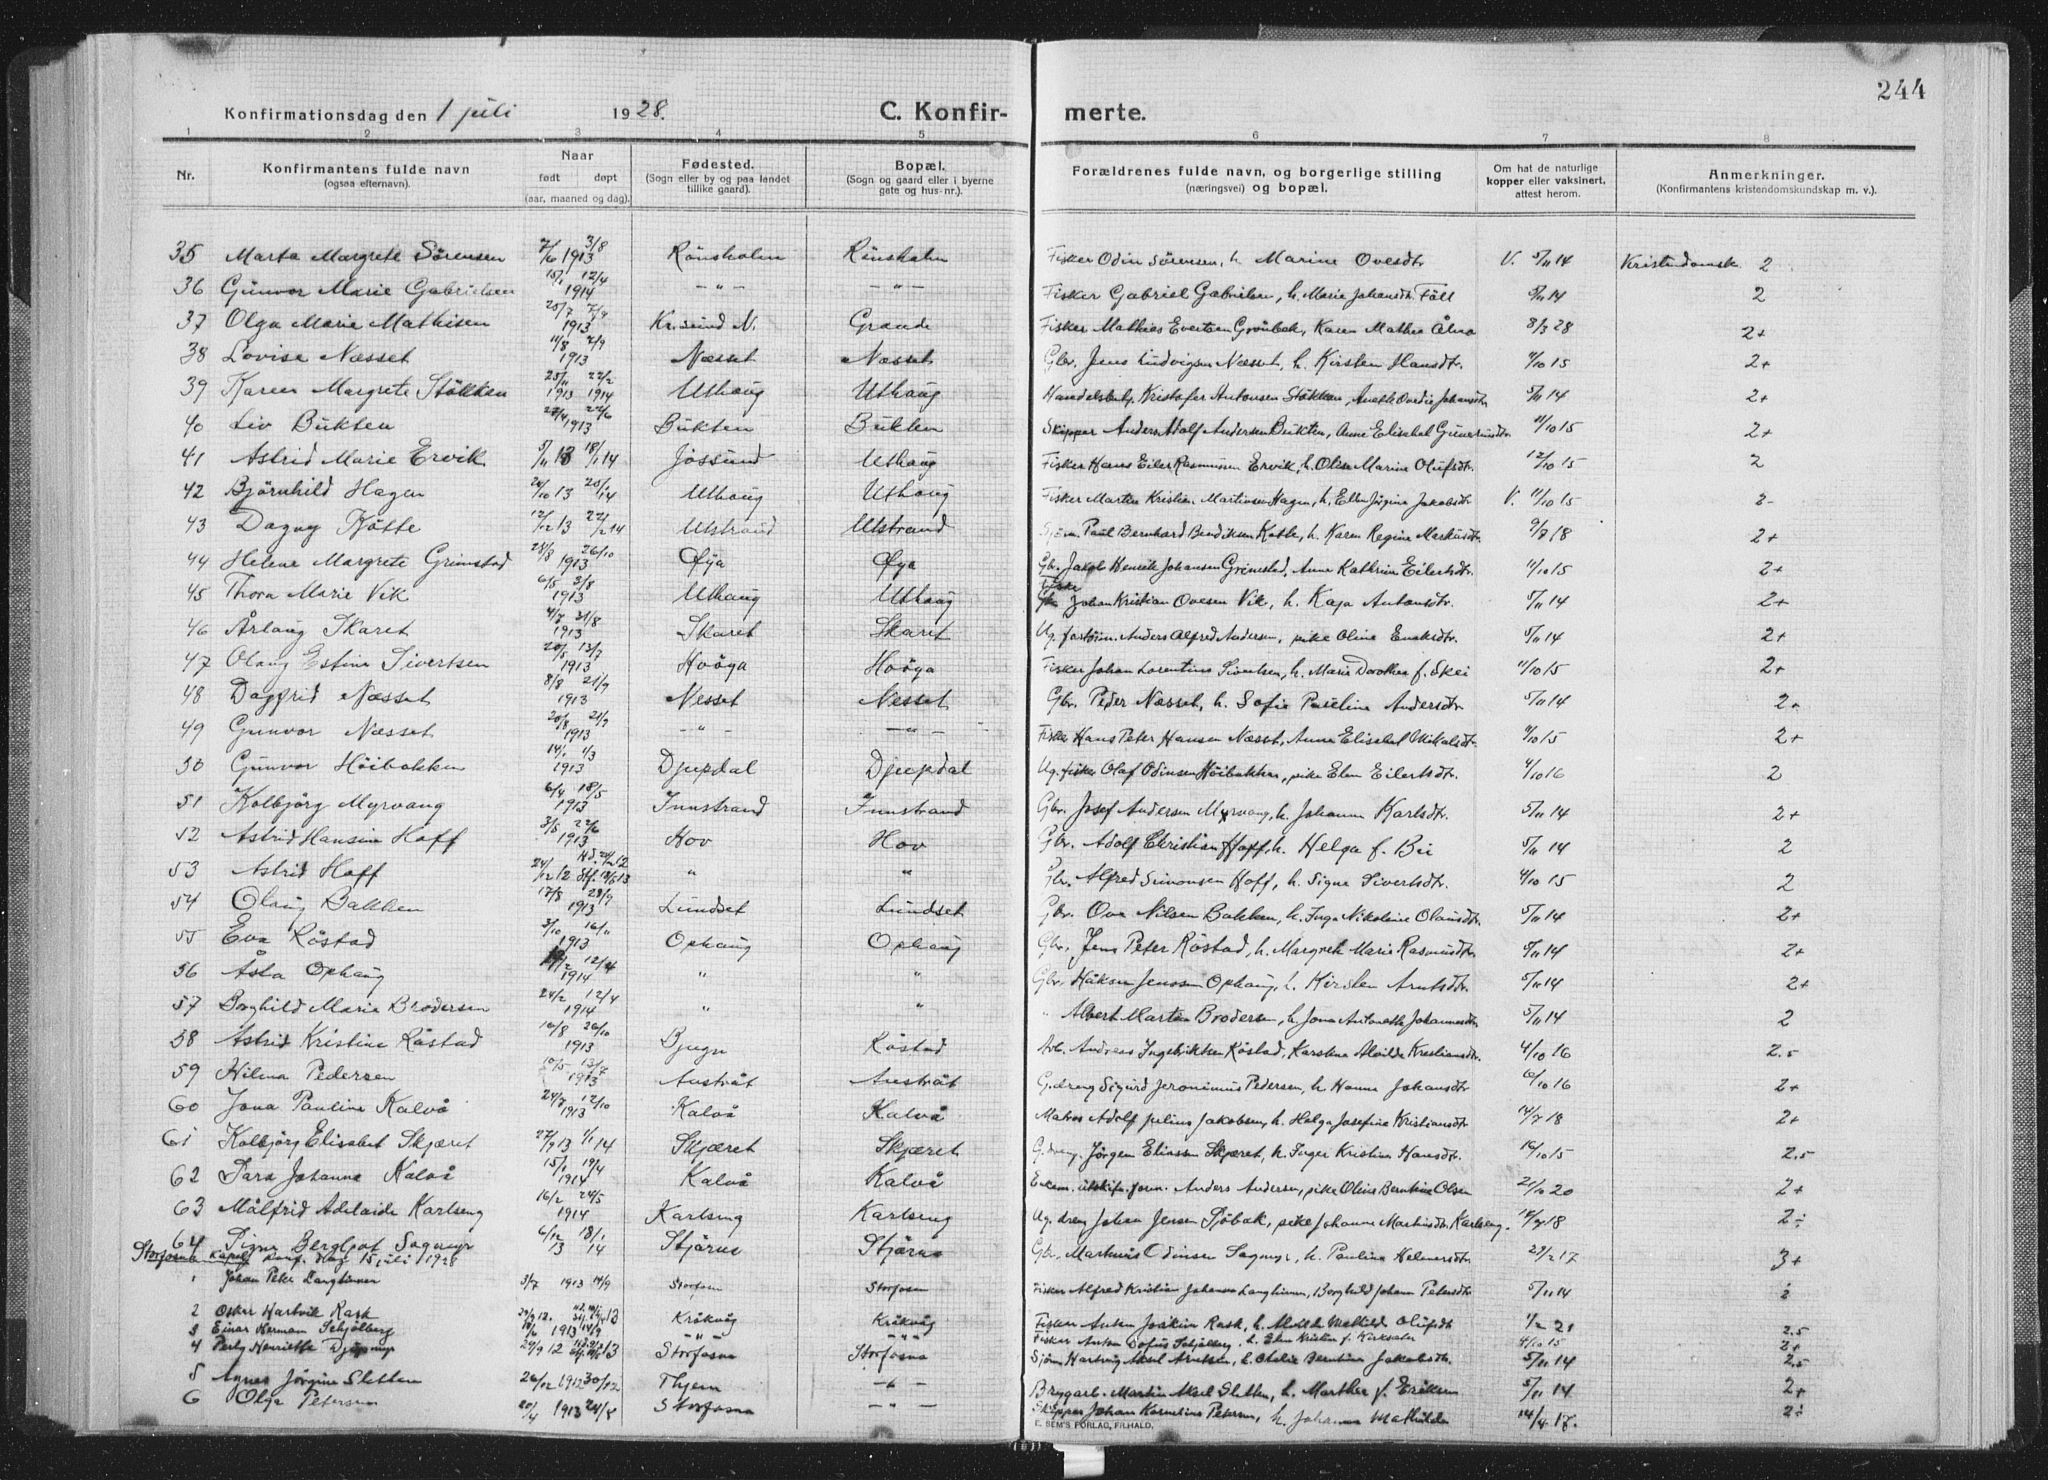 244
Konfirmationsdag den 1 juli 1928. C. Konfir- merte.
1 2 3 4 5 6 7 8
Nr. Konfirmantens fulde navn (ogsaa efternavn). Naar født døpt (aar, maaned og dag). Fødested. (Sogn eller by og paa landet tillike gaard). Bopæl. (Sogn og gaard eller i byerne gate og hus-nr.). Forældrenes fulde navn, og borgerlige stilling (næringsvei) og bopæl. Om hat de naturlige kopper eller vaksinert, attest herom. Anmerkninger. (Konfirmantens kristendomskundskap m. v.).
35 Marta Margrete Sörensen 7/6 3/8 1913 Rönsholm Rönsholm Fisker Odin Sörensen, h. Marine Ovesdtr V. 5/11 14 Kristendomsk. 2
36 Gunvor Marie Gabrielsen 15/1 12/4 1914 -"- -"- Fisker Gabriel Gabrielsen, h. Marie Johansdtr. Föll 5/11 14 2
37 Olga Marie Mathisen 25/7 7/9 1913 Kr.sund N. Grande Fisker Mathias Evertsen Grönbek, Karen Mathea 8/3 28 2+
38 Lovise Næsset 11/8 2/9 1913 Næsset Næsset Gbr. Jens Ludvigsen Næsset, h. Kirsten Hansdtr. 11/10 15 2+
39 Karen Margrete Stökken 25/11 1913 22/2 1914 Uthaug Uthaug Handelsbetj. Kristofer Antonsen Stökken, Johansdtr 5/11 14 2+
40 Liv Bukten 27/4 22/6 1913 Bukten Bukten Skipper Anders Adolf Andersen Bukten, Anne Elisabet 11/10 15 2+
41 Astrid Marie Ervik 5/11 13 18/1 14 Jössund Uthaug Fisker Hans Eiler Rasmussen Ervik, h. Oline Marine Olufsdtr. 12/10 15 2
42 Björnhild Hagen 20/10 13 25/1 14 Uthaug Uthaug Fisker Martin Kristian Martinsen Hagen, h. Ellen Jörgine Jakobsdtr V. 11/10 15 2-
43 Dagny Kötte 12/12 13 22/2 14 Utstrand Utstrand Sjöm. Paul Bernhard Bendiksen Kotte, h. Karen Regine Markusdtr. 9/7 18 2+
44 Helene Margrete Grimstad 28/8 26/10 1913 Öya Öya Gbr. Jakob Henrik Johansen Grimstad, Anne Kathrine Eilertsdtr. 11/10 15 2+
45 Thora Marie Vik 6/5 3/8 1913 Uthaug Uthaug Fisker Johan Kristian Ovesen Vik, h. Kaja Antonsdtr. 5/11 14 2+
46 Årlaug Skaret 4/7 31/8 1913 Skaret Skaret Ug. Anders Alfred Andersen, pike Oline Enoksdtr. 5/11 14 2+
47 Olaug Estine Sivertsen 20/5 13/7 1913 Hoöga Hoöga Fisker Johan Lorentius Sivertsen, h. Marie Dorothea f. Skei 11/10 15 2+
48 Dagfrid Næsset 8/8 21/9 1913 Nesset Nesset Gbr. Peder Næsset, h. Sofie Pauline Andersdtr 5/11 14 2+
49 Gunvor Næsset 20/8 21/9 1913 -"- -"- Fisker Hans Peter Hansen Næsset, Anne Elisabet Mikalsdtr. 11/10 15 2+
50 Gunvor Höibakken 14/1 1/3 1913 Djupdal Djupdal Ug. fisker Olaf Odinsen Höibakken, pike Elen Eilertsdtr. 4/10 16 2
51 Kolbjörg Myrvang 6/4 18/5 1913 Innstrand Innstrand Gbr. Josef Andersen Myrvang, h. Johanna Karlsdtr. 5/11 14 2+
52 Astrid Hansine Hoff 3/5 22/6 1913 Hov Hov Gbr. Adolf Christian Hoff, h. Helga f. Bei 5/11 14 2
53 Astrid Hoff 24/12 12 Hd. 24/12 12 Stf. 12/5 13 " " Gbr. Alfred Simonsen Hoff, h. Signe Sivertsdtr. 4/10 15 2
54 Olaug Bakken 17/8 28/9 1913 Lundset Lundset Gbr. Ove Nilsen Bakken, h. Inga Nikoline Olausdtr 5/11 14 2+
55 Eva Röstad 3/10 16/11 1913 Ophaug Ophaug Gbr. Jens Peter Röstad, h. Margrete Marie Rasmusdtr 5/11 14 2+
56 Åsta Ophaug 12/4 1914 " " Gbr. Håkon Jenssen Ophaug, h. Kirsten Arntsdtr. 5/11 14 2+
57 Borghild Marie Brodersen 24/2 12/4 1914 " " " Albert Martin Brodersen, h. Jona Antonette Johannesdtr 5/11 14 2
58 Astrid Kristine Röstad 10/8 26/10 1913 Bjugn Röstad Arb. Andreas Ingebriktsen Röstad, Karstine Alvilde Kristiansdtr. 4/10 16 2.5
59 Hilma Pedersen 10/5 13/7 1913 Austråt Austråt G.dreng Sigurd Jeronimus Pedersen, h. Hanna Johansdtr 6/10 16 2+
60 Jona Pauline Kalvå 24/7 12/10 1913 Kalvå Kalvå Matros Adolf Julius Jakobsen, h. Helga Josefine Kristiansdtr 14/7 18 2+
61 Kolbjörg Elisabet Skjæret 27/9 13 1/1 14 Skjæret Skjæret G.dreng. Jörgen Eliassen Skjæret, h. Inger Kristine Hansdtr. 10/10 15 2.5
62 Sara Johanna Kalvå 15/1 19/4 1914 Kalvå Kalvå Anders Andersen, pike Oline Berntine Olsen 21/10 20 2+
63 Målfrid Adelaide Karlseng 16/2 24/5 1914 Karlseng Karlseng Ug. dreng Johan Jensen Sjöbak, pike Johanna Martinsdtr Karlseng. 18 2÷
64 Signe Bergljot Sagmyr 6/12 13 18/1 14 Stjårne Stjårne Gbr. Markus Odinsen Sagmyr, h. Pauline Helmersdtr 29/2 17 3+
Storfosna kapell konf. dag 15 juli 1928
1 Johan Peter Langhinnen 3/7 1913 14/9 Storfosn Storfosn Fisker Alfred Kristian Johansen Langhinnen, Borghild Johanna Petersdtr 5/11 14 2
2 Oskar Hartvik Rask 29/9 12. 13 Kråkvåg Kråkvåg Fisker Anton Joakim Rask, h. Mathilde Olufsdtr 21
3 Einar Herman Schjölberg 10/6 1913 14/9 "" "" Fisker Anton Dofus Schjölberg, h. Elen Kristine f. Kirksæter 4/10 15 2.5
4 Perly Henriette Djupmyr 29/9 12 13 Storfosna Storfosna Sjöm. Hartvig Aksel Arntsen, h. Otelie Berntine Jakobsdtr. 5/11 14 2+ 2.5
5 Agnes Jörgine Sletten 26/12 1912 30/12 Thjem -"- Brygarb. Martin Aksel Sletten, h. Marthea f. Eriksen 5/11 14 2+
6 Olga Petersen 20/4 1913 24/8 Storfosna -"- Skipper Johan Kornelius Petersen, h. Johanna Mathilde 14/4 17. 2÷
E. SEM'S FORLAG, F.HALD.